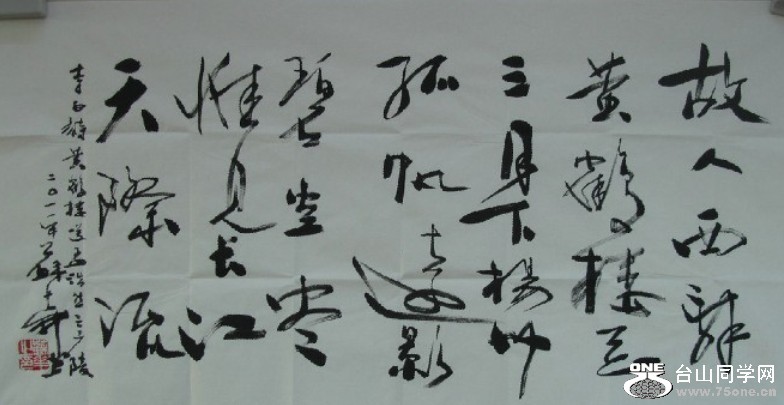 故人西辞
黄鹤楼
三月下揚州
孤帆遠影
碧空尽
惟見长江
天際流
李白诗黄鹤楼送孟浩然之广陵
二〇一一年
ONE
台山同学网
www.75one.cn